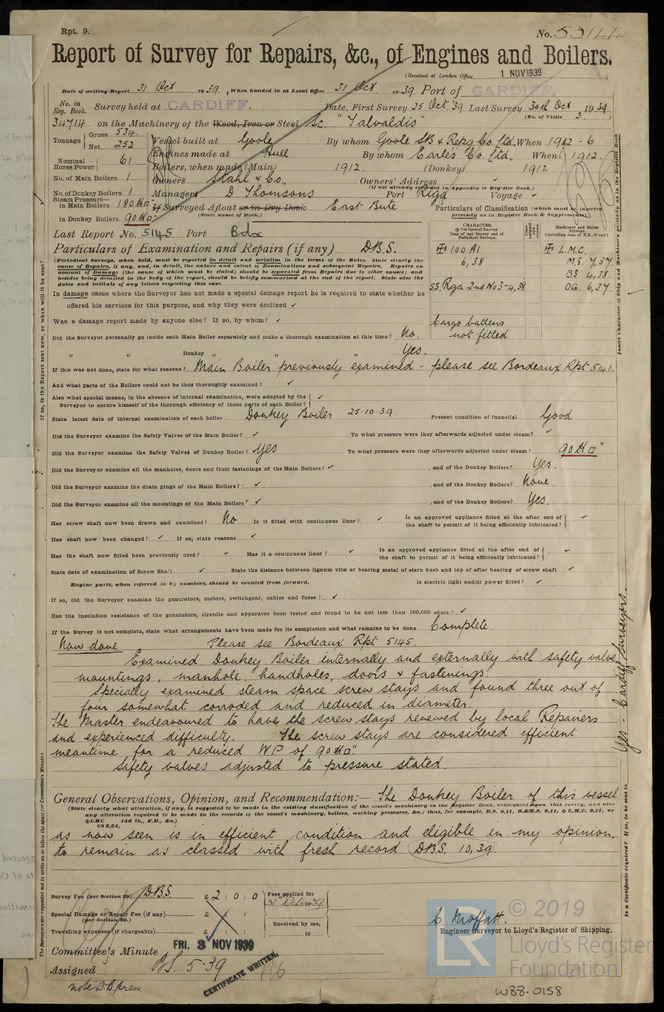 Rpt. 9.
No. 53144
Report of Survey for Repairs, &c., of Engines and Boilers.
(Received at London Office 1 NOV 1939
Date of writing Report 31 Oct 1939, When handed in at Local Office 31 Oct 1939. Port of CARDIFF.
No. in Reg. Book. Survey held at CARDIFF. Date, First Survey 25 Oct 39 Last Survey 30th Oct 1939
(No. of Visits 3)
34714 on the Machinery of the Wood, Iron or Steel Sc. "Talvaldis"
Tonnage Gross 534 Net 252
Vessel built at Goole By whom Goole SB & Repg Co. Ltd. When 1912-6
Nominal Horse Power 61
Engines made at Hull By whom Earle's Co. Ltd. When 1912.
No. of Main Boilers 1 Boilers, when made (Main) 1912 (Donkey) 1912
Owners Stahl & Co. Owners' Address
(If not already recorded in Appendix to Register Book.)
No. of Donkey Boilers 1 Managers D. Thomsons Port Riga Voyage ✓
Steam Pressure in Main Boilers 180 lb
in Donkey Boilers 90 lb
If Surveyed Afloat or in Dry Dock East Bute
(State name of Dock.)
Particulars of Classification (which must be inserted precisely as in Register Book & Supplement)
Last Report No. 5145 Port Bdx
Particulars of Examination and Repairs (if any) DBS.
✠ 100 A1
6,38
SS. Riga 2nd No3-4,38
✠ L.M.C.
M.S. 7,37.
BS 4,38.
OG. 6,37.
Cargo battens not fitted
In damage cases where the Surveyor has not made a special damage report he is required to state whether he offered his services for this purpose, and why they were declined ✓
Was a damage report made by anyone else? If so, by whom? ✓
Did the Surveyor personally go inside each Main Boiler separately and make a thorough examination at this time? No.
" " Donkey " " " Yes.
If this was not done, state for what reasons? Main Boiler previously examined - please see Bordeaux Rpt 5141.
And what parts of the Boilers could not be thus thoroughly examined? ✓
Also what special means, in the absence of internal examination, were adopted by the Surveyor to assure himself of the thorough efficiency of those parts of each Boiler? ✓
State latest date of internal examination of each boiler Donkey Boiler 25.10.39. Present condition of funnel(s) Good
Did the Surveyor examine the Safety Valves of the Main Boiler? ✓ To what pressure were they afterwards adjusted under steam? ✓
Did the Surveyor examine the Safety Valves of Donkey Boiler? Yes To what pressure were they afterwards adjusted under steam? 90 lb
Did the Surveyor examine all the manholes, doors and their fastenings of the Main Boilers? ✓, and of the Donkey Boilers? Yes.
Did the Surveyor examine the drain plugs of the Main Boilers? ✓, and of the Donkey Boilers? None.
Did the Surveyor examine all the mountings of the Main Boilers? ✓, and of the Donkey Boilers? Yes.
Has screw shaft now been drawn and examined? No Is it fitted with continuous liner? ✓ Is an approved appliance fitted at the after end of the shaft to permit of it being efficiently lubricated? ✓
Has shaft now been changed? ✓ If so, state reasons ✓
Has the shaft now fitted been previously used? ✓ Has it a continuous liner? ✓ Is an approved appliance fitted at the after end of the shaft to permit of it being efficiently lubricated? ✓
State date of examination of Screw Shaft ✓ State the distance between lignum vitæ or bearing metal of stern bush and top of after bearing of screw shaft ✓
Engine parts, when referred to by numbers, should be counted from forward. Is electric light and/or power fitted? ✓
If so, did the Surveyor examine the generators, motors, switchgear, cables and fuses? ✓
Has the insulation resistance of the generators, circuits and apparatus been tested and found to be not less than 100,000 ohms? ✓
If the Survey is not complete, state what arrangements have been made for its completion and what remains to be done Complete
Now done Please see Bordeaux Rpt 5145.
Examined Donkey Boiler internally and externally with safety valve,
mountings, manhole, handholes, doors & fastenings.
Specially examined steam space screw stays and found three out of
four somewhat corroded and reduced in diameter.
The Master endeavoured to have the screw stays renewed by local Repairers
and experienced difficulty. The screw stays are considered efficient
meantime for a reduced W.P. of 90 lb
Safety valves adjusted to pressure stated.
General Observations, Opinion, and Recommendation:— The Donkey Boiler of this vessel
as now seen is in efficient condition and eligible in my opinion,
to remain as classed with fresh record DBS 10,39.
Survey Fee (per Section 29) DBS £ 2 : 0 : 0 Fees applied for
Special Damage or Repair Fee (if any) (per Section 29.) £
Travelling expenses (if chargeable) £ Received by me,
C Moffatt.
Engineer Surveyor to Lloyd's Register of Shipping.
Committee's Minute FRI. 3 NOV 1939
Assigned BS. 5.39
CERTIFICATE WRITTEN.
note D.B. press
Yes - Cardiff Surveyors.
© 2019
LR
Lloyd's Register
Foundation
W88-0158